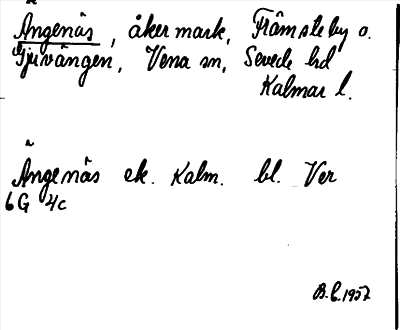 Ängenäs, åkermark, Främsteby o.
Tjuvängen, Vena sn, Sevede hd
Kalmar l.
Ängenäs ek. Kalm. bl. Ver
6G 4c
B.E. 1957